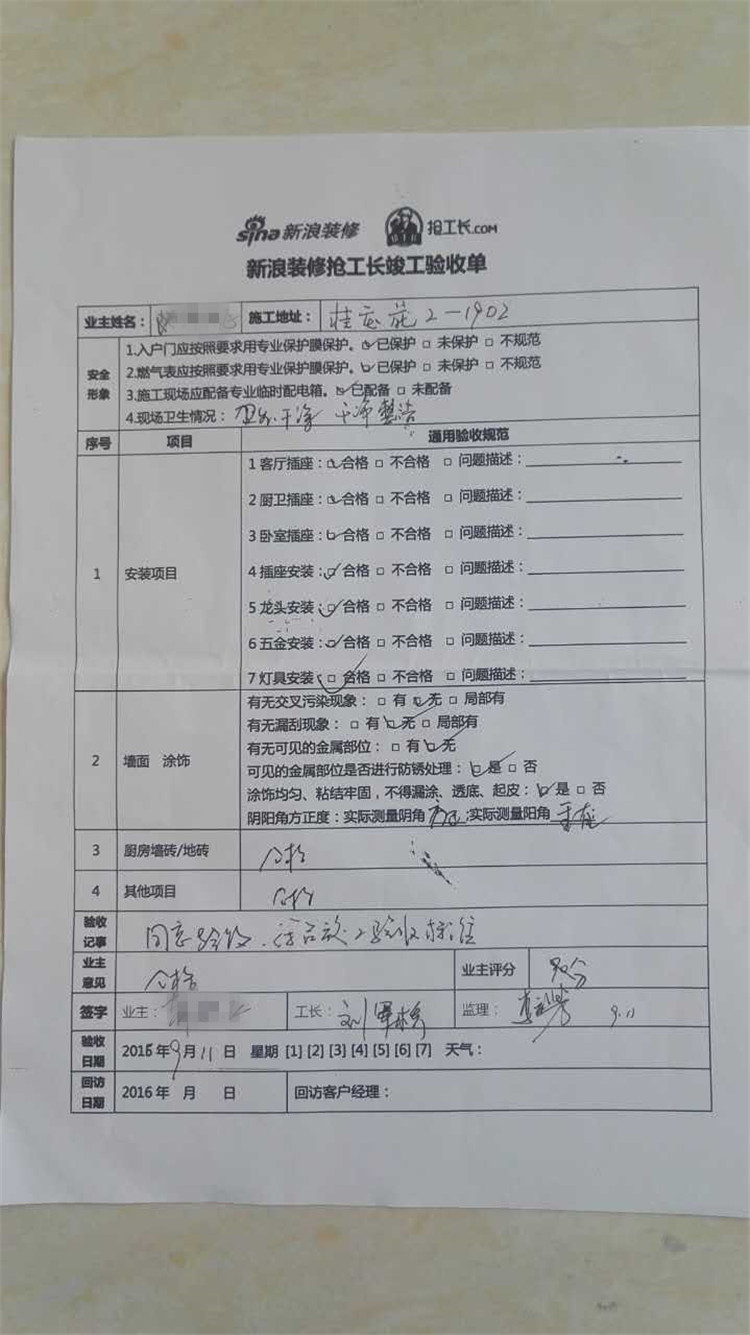 sina 新浪装修 抢工长.COM
新浪装修抢工长竣工验收单
业主姓名: 施工地址: 2-1902
安全形象
1.入户门应按照要求用专业保护膜保护。☑已保护 □ 未保护 □ 不规范
2.燃气表应按照要求用专业保护膜保护。☑已保护 □ 未保护 □ 不规范
3.施工现场应配备专业临时配电箱。☑已配备 □ 未配备
4.现场卫生情况: 卫生干净 干净整洁
序号 项目 通用验收规范
1 安装项目
1 客厅插座:☑合格 □ 不合格 □ 问题描述:
2 厨卫插座:☑合格 □ 不合格 □ 问题描述:
3 卧室插座:☑合格 □ 不合格 □ 问题描述:
4 插座安装:☑合格 □ 不合格 □ 问题描述:
5 龙头安装:☑合格 □ 不合格 □ 问题描述:
6 五金安装:☑合格 □ 不合格 □ 问题描述:
7 灯具安装:☑合格 □ 不合格 □ 问题描述:
2 墙面 涂饰
有无交叉污染现象: □ 有 ☑无 □ 局部有
有无漏刮现象: □ 有 ☑无 □ 局部有
有无可见的金属部位: □ 有 ☑无
可见的金属部位是否进行防锈处理:☑是 □ 否
涂饰均匀、粘结牢固,不得漏涂、透底、起皮:☑是 □ 否
阴阳角方正度:实际测量阴角 ;实际测量阳角
3 厨房墙砖/地砖 合格
4 其他项目 合格
验收记事 同意验收.符合施工验收标准
业主意见 合格 业主评分 90分
签字 业主: 工长: 刘 监理: 9.11
验收日期 2015年9月11日 星期 [1] [2] [3] [4] [5] [6] [7] 天气:
回访日期 2016年 月 日 回访客户经理: